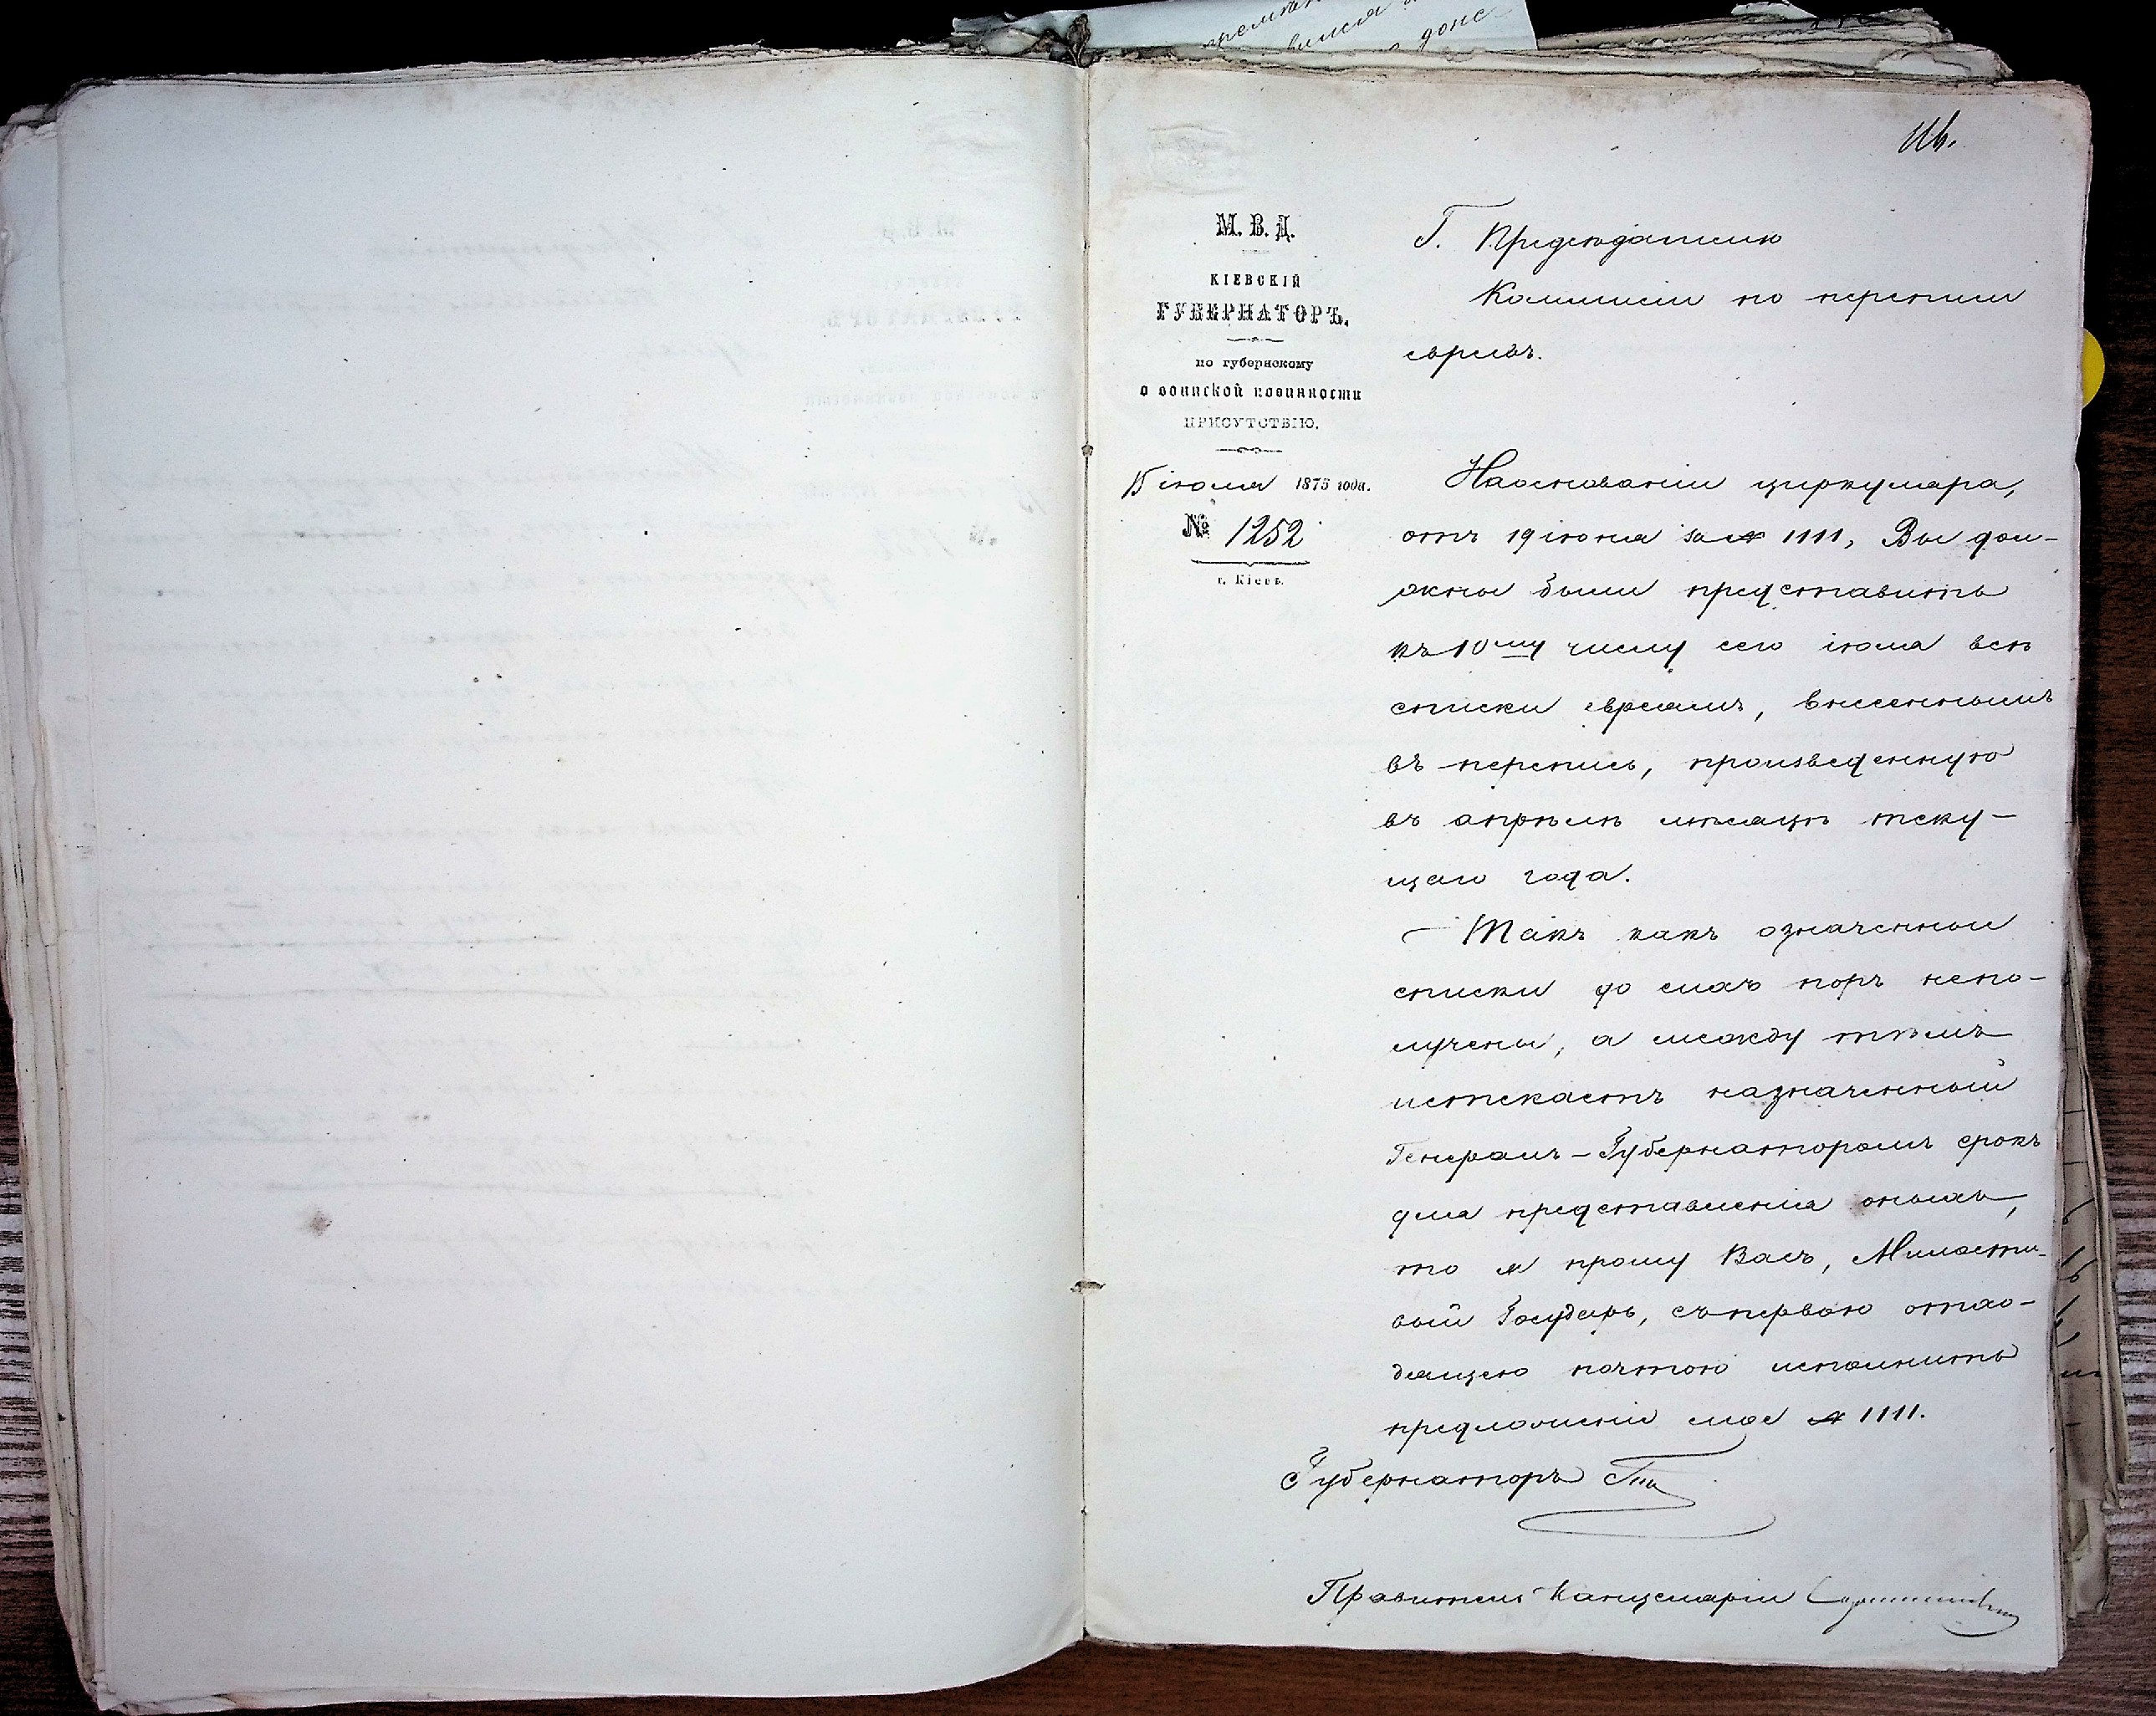 116.
М. В. Д.
КІЕВСКІЙ
ГУБЕРНАТОРЪ.
по губернскому
о воинской повинности
ПРИСУТСТВІЮ.
15 іюля 1875 года.
№ 1252
г. Кіевъ.
Г. Предсѣдателю
Коммисіи по переписи
евреевъ.
На основаніи циркуляра,
отъ 19 іюня за № 1111, Вы дол-
жны были представить
къ 10му числу сего іюля всѣ
списки евреямъ, внесеннымъ
въ перепись, произведенную
въ апрѣлѣ мѣсяцѣ теку-
щаго года.
Такъ какъ означенные
списки до сихъ поръ непо-
лучены, а между тѣмъ
истекаетъ назначенный
Генералъ-Губернаторомъ срокъ
для представленія оныхъ,
то я прошу Васъ, Милости-
вый Государь, съ первою отхо-
дящею почтою исполнить
предложеніе мое № 1111.
Губернаторъ
Правитель Канцеляріи